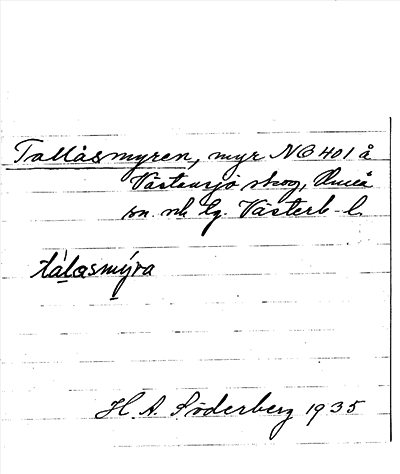 Tallåsmyren, myr NB 401 å
Västansjö skog, Umeå
sn. och lg. Västerb. l.
tàlasmýra
H. A. Söderberg 1935